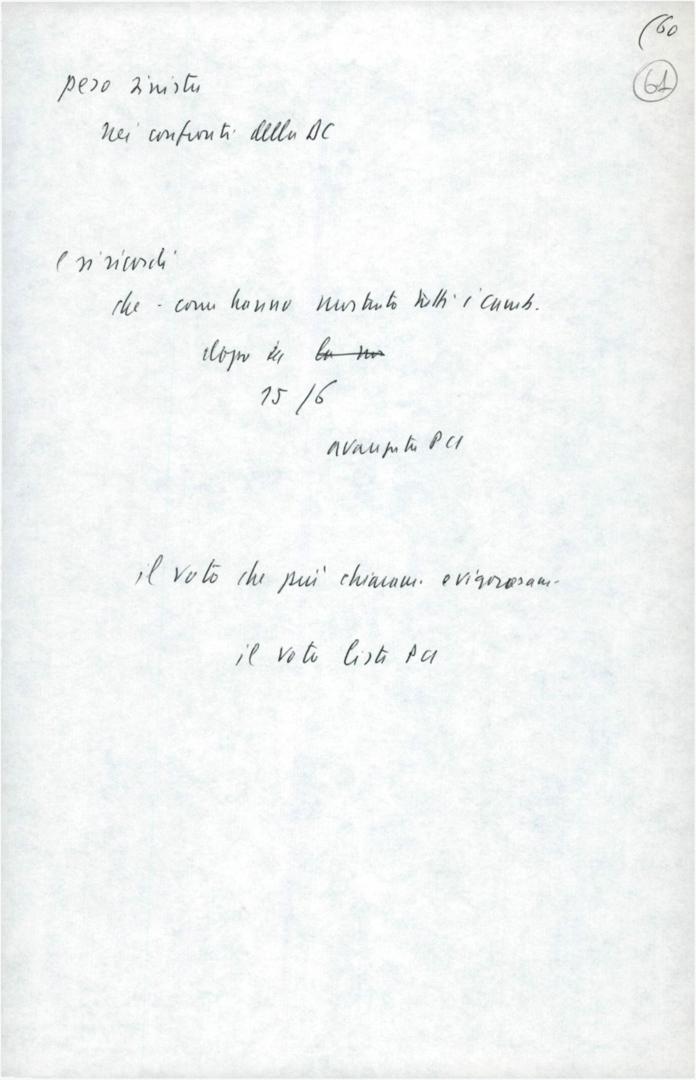 (60
61
peso sinistra
nei confronti della DC
e si ricordi
che - come hanno mostrato tutti i camb.
dopo il la no
15/6
avanzata PCI
il voto che più chiaram. e vigorosam.
il voto lista PCI